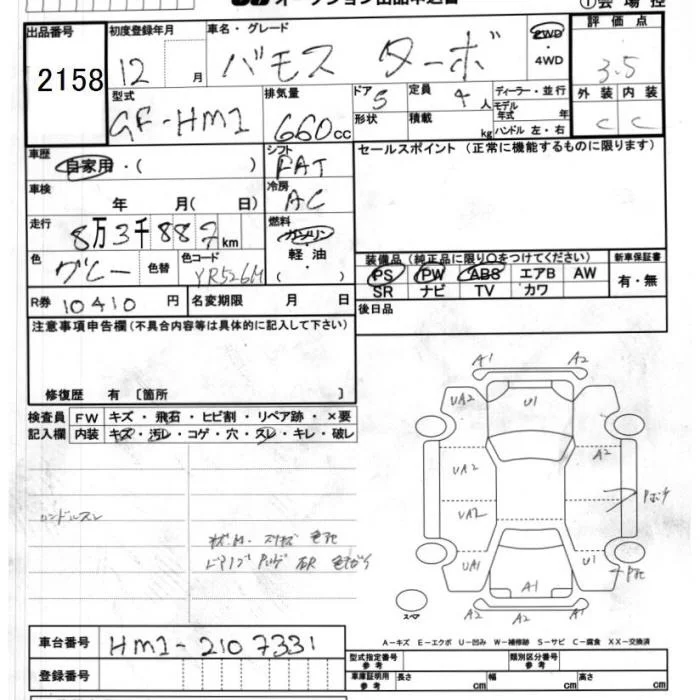 オークション出品申込書
①会場控
出品番号
2158
初度登録年月
12 月
車名・グレード
バモス ターボ
2WD
・
4WD
評価点
3.5
外装 内装
C C
型式
GF-HM1
排気量
660cc
ドア 5
定員 4人
形状
積載 kg
ディーラー・並行
モデル年式 年
ハンドル 左・右
車歴
自家用・( )
シフト
FAT
セールスポイント (正常に機能するものに限ります)
車検
年 月( 日)
冷房
AC
走行
8万3千887km
燃料
ガソリン
軽油
( )
色
グレー
色替
色コード
YR526M
装備品 (純正品に限り○をつけてください)
PS PW ABS エアB AW
SR ナビ TV カワ
新車保証書
有・無
R券 10410 円
名変期限 月 日
後日品
注意事項申告欄(不具合内容等は具体的に記入して下さい)
修復歴 有 [箇所 ]
検査員
記入欄
FW キズ・飛石・ヒビ割・リペア跡・×要
内装 キズ・汚レ・コゲ・穴・スレ・キレ・破レ
A1 A2
UA2 U1
UA2 A2
UA2
UA1 U1
A1
A2 A2 A1
スペア
車台番号 HM1-2107331
登録番号
A-キズ E-エクボ U-凹み W-補修跡 S-サビ C-腐食 XX-交換済
型式指定番号
参考
類別区分番号
参考
車庫証明用
参考
長さ cm 幅 cm 高さ cm